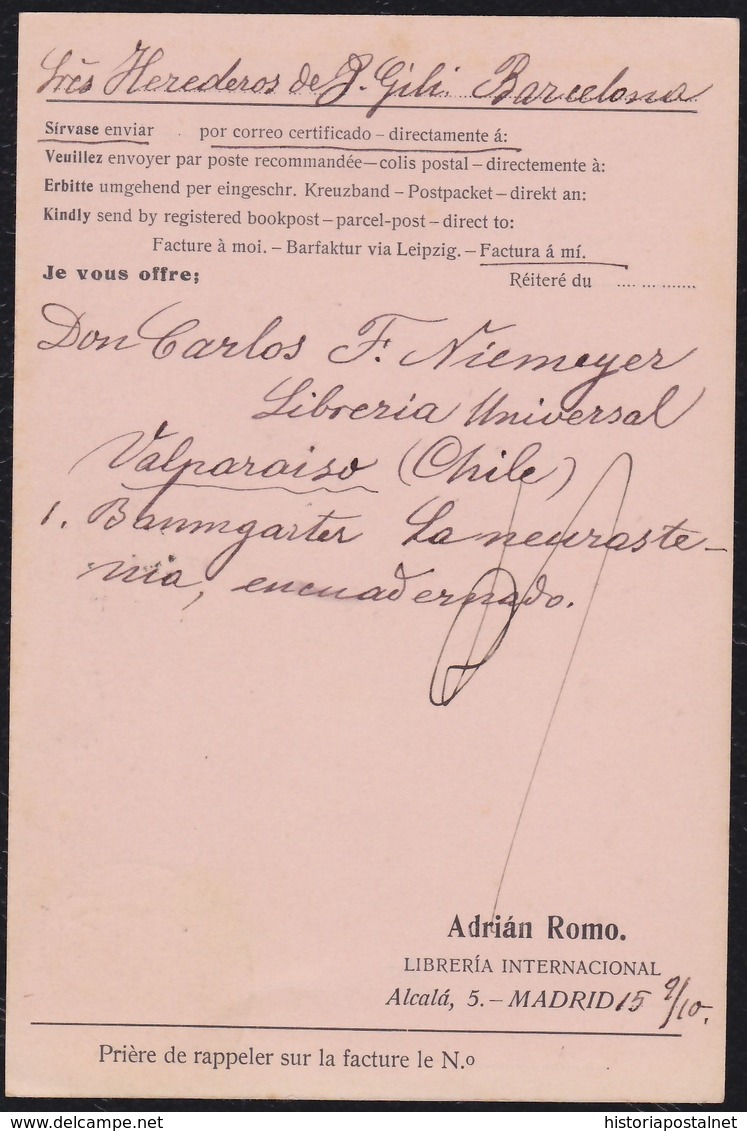 Srēs Herederos de J. Gili. Barcelona
Sírvase enviar . por correo certificado – directamente á:
Veuillez envoyer par poste recommandée—colis postal – directement à:
Erbitte umgehend per eingeschr. Kreuzband – Postpacket – direkt an:
Kindly send by registered bookpost – parcel-post – direct to:
Facture à moi. – Barfaktur via Leipzig. – Factura á mí.
Je vous offre; Réiteré du .... ... .......
Don Carlos F. Niemeyer
Libreria Universal
Valparaiso (Chile)
1. Baumgarter La neuraste-
nia, encuadernado.
Adrián Romo.
LIBRERÍA INTERNACIONAL
Alcalá, 5. – MADRID 15 9/10.
Prière de rappeler sur la facture le N.o
historiapostalnet